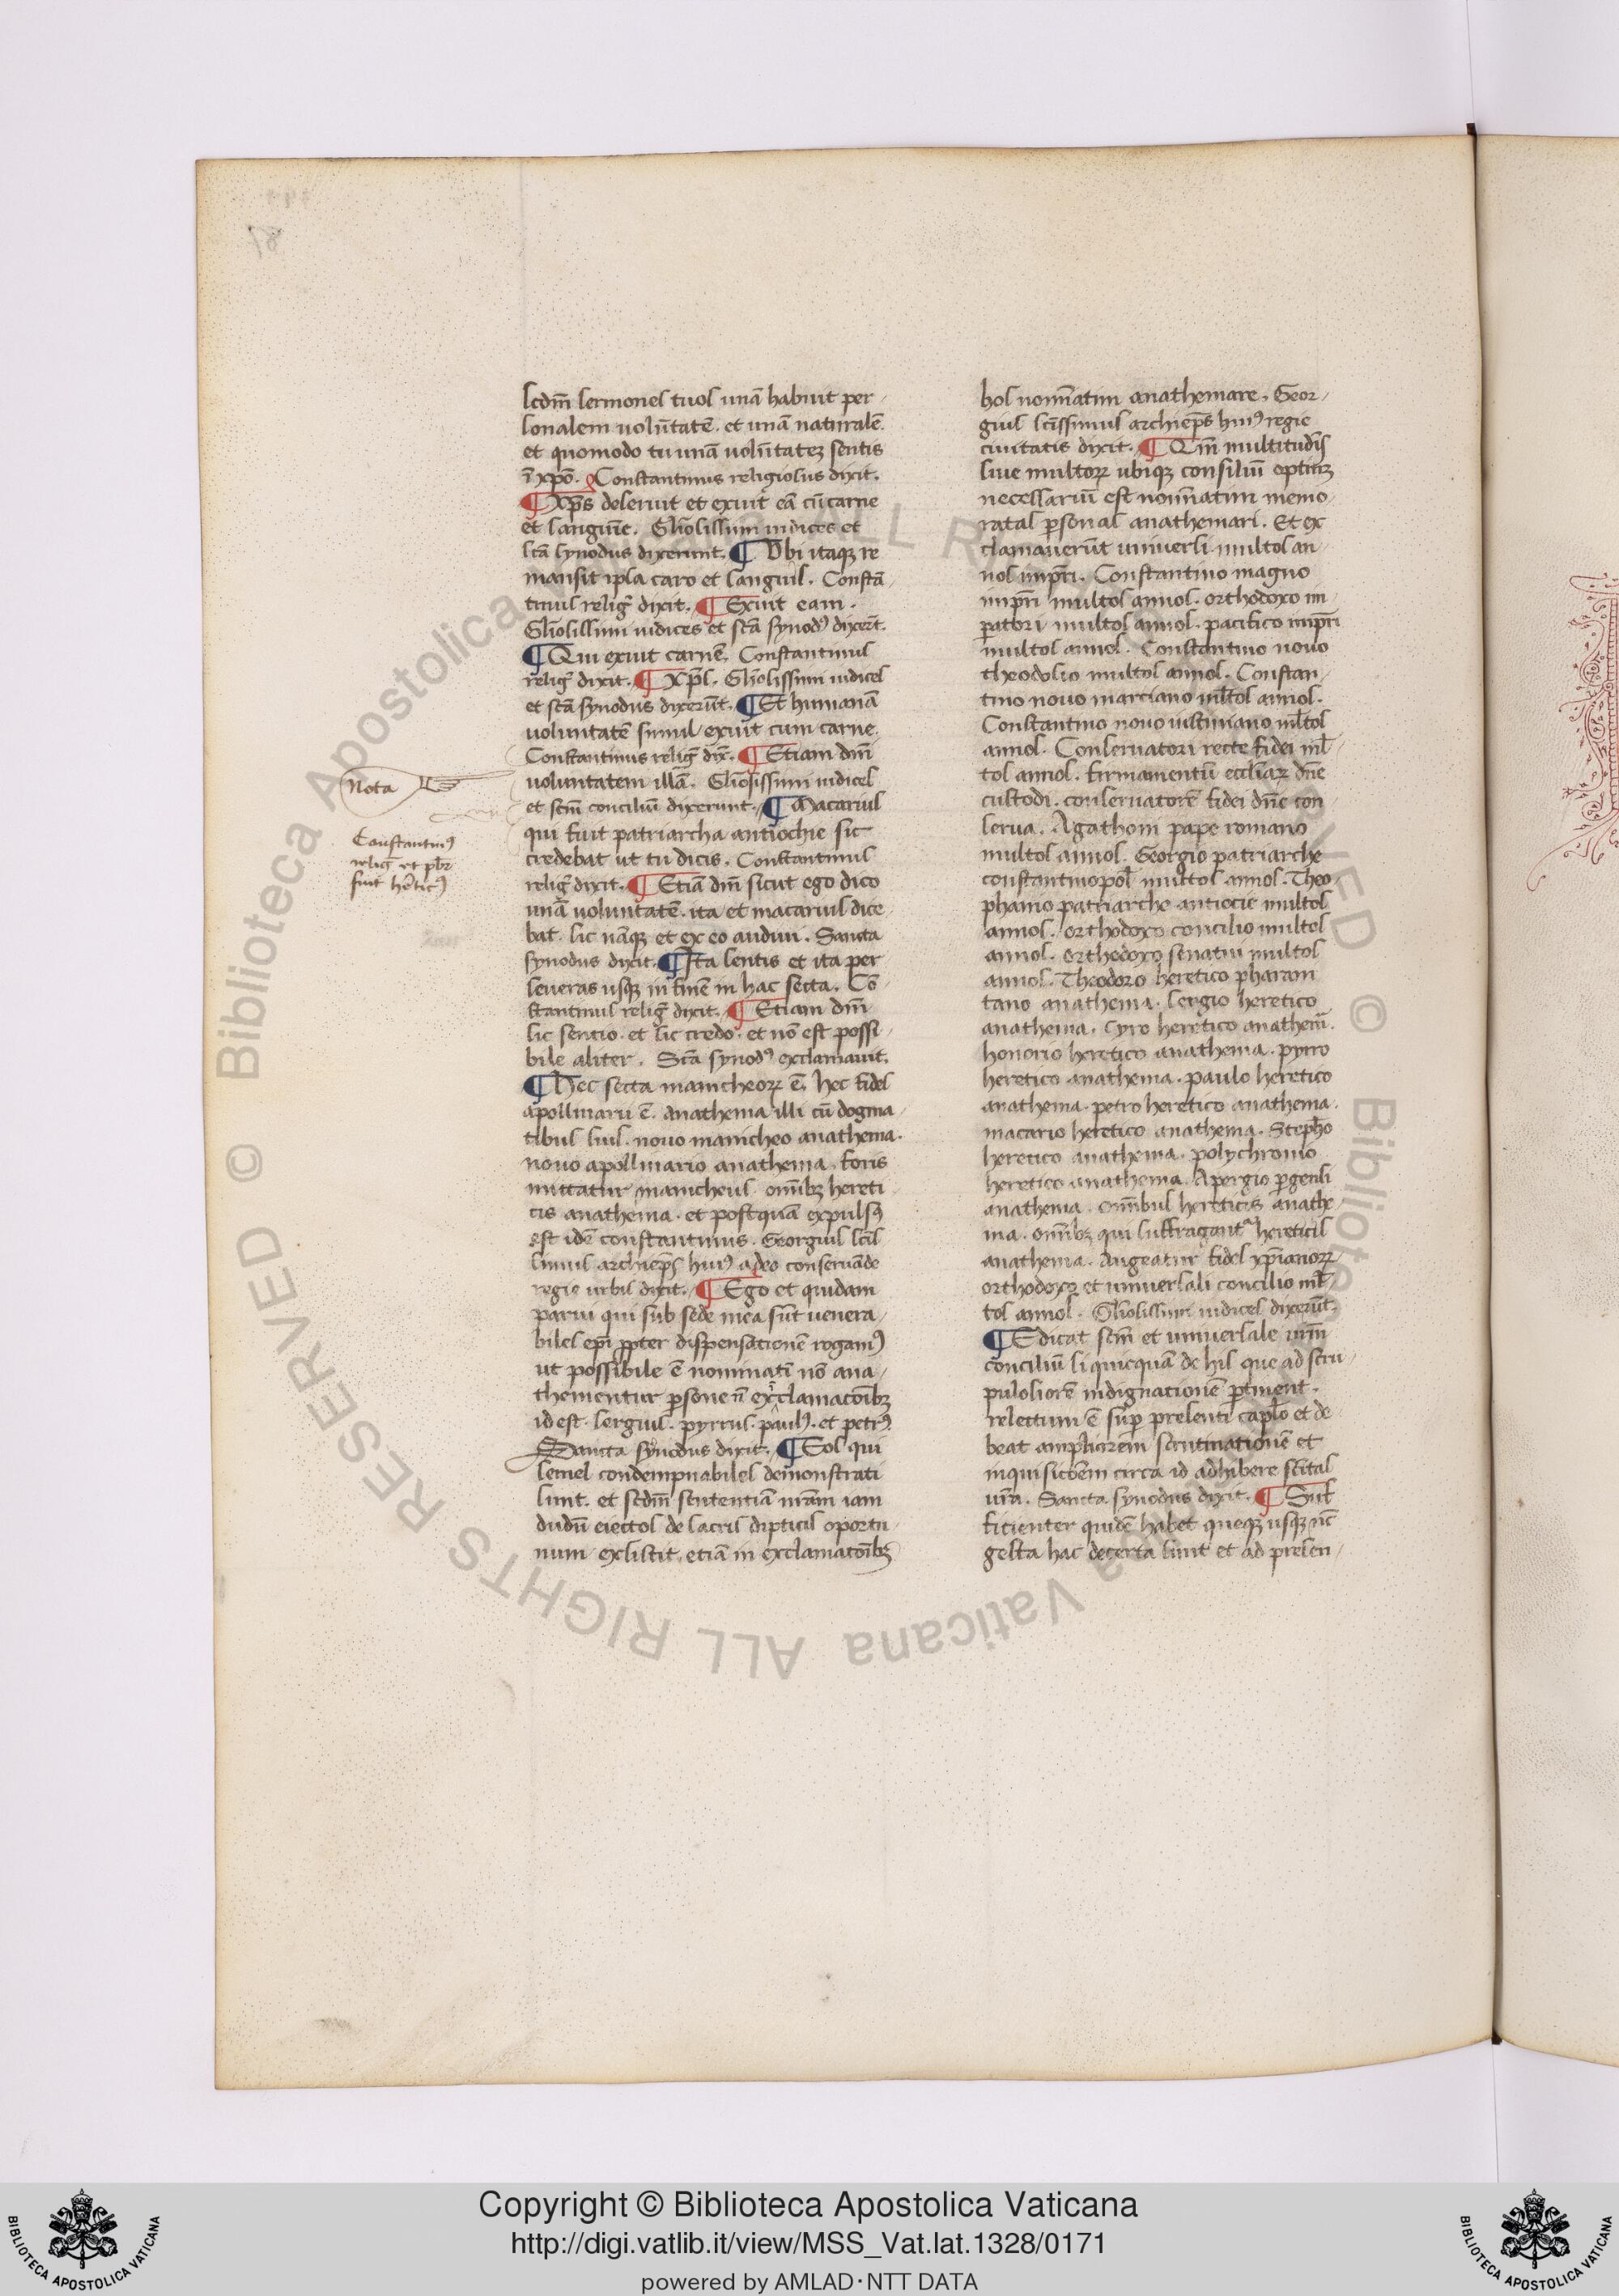 Nota
Constantinꝰ
relig̅ et pb̅r
fuit he̅ticꝰ
scdm̅ sermones tuos unā habuit per
sonalem uolu̅tatē. et unā naturalē.
et quomodo tu unā uolu̅tatez sentis
i̅ xp̅o. Constantinus religiosus dixit.
¶ Xp̅s deseruit et exuit eā cu̅ carne
et sanguīe. Gl̅iosissimi iudices et
sc̅a synodus dixerunt. ¶ Ubi itaqꝫ re
mansit ipsa caro et sanguis. Constā
tinus relig̅ dixit. ¶ Exuit eam.
Gl̅iosissimi iudices et sc̅a synodꝰ dixer̅t.
¶ Qui exuit carnē. Constantinus
relig̅ dixit. ¶ Xp̅s. Gl̅iosissimi iudices
et sc̅a synodus dixeru̅t. ¶ Et humanā
uoluntatē simul exuit cum carne.
Constantinus relig̅ dix̅. ¶ Etiam dn̅i
uoluntatem illā. Gl̅iosissimi iudices
et sc̅m conciliū dixerunt. ¶ Macarius
qui fuit patriarcha antiochie sic
credebat ut tu dicis. Constantinus
relig̅ dixit. ¶ Etiā dn̅i sicut ego dico
unā uoluntatē. ita et macarius dice
bat. sic nāqꝫ et ex eo audiui. Sancta
synodus dixit. ¶ Ita sentis et ita per
seueras usqꝫ in finē in hac secta. Cō
stantinus relig̅ dixit. ¶ Etiam dn̅i
sic sentio. et sic credo. et nō est possi
bile aliter. Sc̅a synodꝰ exclamauit.
¶ Hec secta manicheoꝝ ē. hec fides
apollinarii ē. anathema illi cū dogma
tibus suis. nouo manicheo anathema.
nouo apollinario anathema. foris
mittatur manicheus. omībꝫ hereti
cis anathema. et postquā expulsꝰ
est idē constantinus. Georgius sc̅is
simus archiep̅s huiꝰ a deo conseruāde
regie urbis dixit. ¶ Ego et quidam
parui qui sub sede mea sūt uenera
biles ep̅i ꝓpter dispensationē rogamꝰ
ut possibile ē nominatī nō ana
thementur ꝑsone in exclamatoībꝫ
id est. sergius. pyrrus. paulꝰ. et petrꝰ.
Sancta synodus dixit. ¶ Eos qui
semel condempnabiles demonstrati
sunt. et scdm̅ sententiā nr̅am iam
dudū eiectos de sacris dipticis oportu
num existit. etiā in exclamatoībꝫ
hos nomīatim anathemare. Geor
gius sc̅issimus archiep̅s huiꝰ regie
ciuitatis dixit. ¶ Qm̅ multitudīs
siue multoꝝ ubiqꝫ consiliū optinꝫ
necessariū est nomīatim memo
ratas ꝑsonas anathemari. Et ex
clamauerūt uniuersi. multos an
nos imp̅ri. Constantino magno
imp̅ri multos annos. orthodoxo im
ꝑatori multos annos. pacifico imp̅ri
multos annos. Constantino nouo
theodosio multos annos. Constan
tino nouo marciano ml̅tos annos.
Constantino nouo iustiniano ml̅tos
annos. Conseruatori recte fidei ml̅
tos annos. firmamentū eccl̅iaꝝ dn̅e
custodi. conseruatorē fidei dn̅e con
serua. Agathoni pape romano
multos annos. Georgio patriarche
constantinopol̅ multos annos. Theo
phanio patriarche antiocie multos
annos. orthodoxo concilio multos
annos. orthodoxo senatui multos
annos. Theodoro heretico pharani
tano anathema. sergio heretico
anathema. cyro heretico anathem̅.
honorio heretico anathema. pyrro
heretico anathema. paulo heretico
anathema. petro heretico anathema.
macario heretico anathema. Steph̅o
heretico anathema. polychronio
heretico anathema. Apergio ꝑgensi
anathema. omībus hereticis anathe
ma. omībꝫ qui suffragant̅ hereticis
anathema. Augeatur fides xp̅ianoꝝ
orthodoxo et uniuersali concilio ml̅
tos annos. Gl̅iosissimi iudices dixerūt.
¶ Edicat sc̅m et uniuersale ur̅m
conciliū si quicquā de his que ad scru
pulosiorē indignationē ꝑtinent.
relectum ē suꝑ presenti capl̅o et de
beat ampliorem scrutinationē et
inquisitōem circa id adhibere sc̅itas
ur̅a. Sancta synodus dixit. ¶ Suf
ficienter quidē habet queqꝫ usqꝫ nc̅
gesta hac decerta sunt et ad presen
Copyright © Biblioteca Apostolica Vaticana
http://digi.vatlib.it/view/MSS_Vat.lat.1328/0171
powered by AMLAD·NTT DATA
BIBLIOTECA APOSTOLICA VATICANA
BIBLIOTECA APOSTOLICA VATICANA